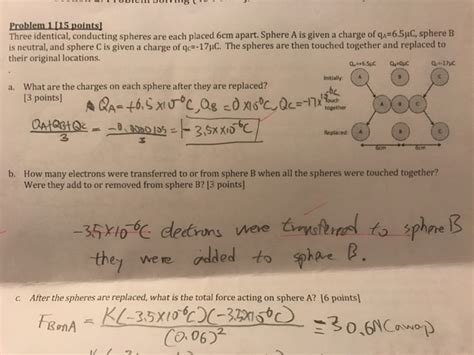 Problem 1 [15 points]
Three identical, conducting spheres are each placed 6cm apart. Sphere A is given a charge of qA=6.5μC, sphere B
is neutral, and sphere C is given a charge of qC=-17μC. The spheres are then touched together and replaced to
their original locations.
a. What are the charges on each sphere after they are replaced?
[3 points]
QA=+6.5μC QB=0μC QC=-17μC
Initially:
A B C
Touch
together
A B C
Replaced:
A B C
6cm 6cm
QA = +6.5 X10^-6C, QB = 0 X10^-6C, QC = -17 X10^-6C
QA+QB+QC / 3 = -0.0000105 / 3 = -3.5xX10^-6C
b. How many electrons were transferred to or from sphere B when all the spheres were touched together?
Were they to added to or removed from sphere B? [3 points]
-3.5X10^-6C electrons were transferred to sphere B
they were added to sphere B.
c. After the spheres are replaced, what is the total force acting on sphere A? [6 points]
FBonA = K(-3.5X10^-6C)(-3.5X10^-6C) / (0.06)^2 = 30.6N (away)